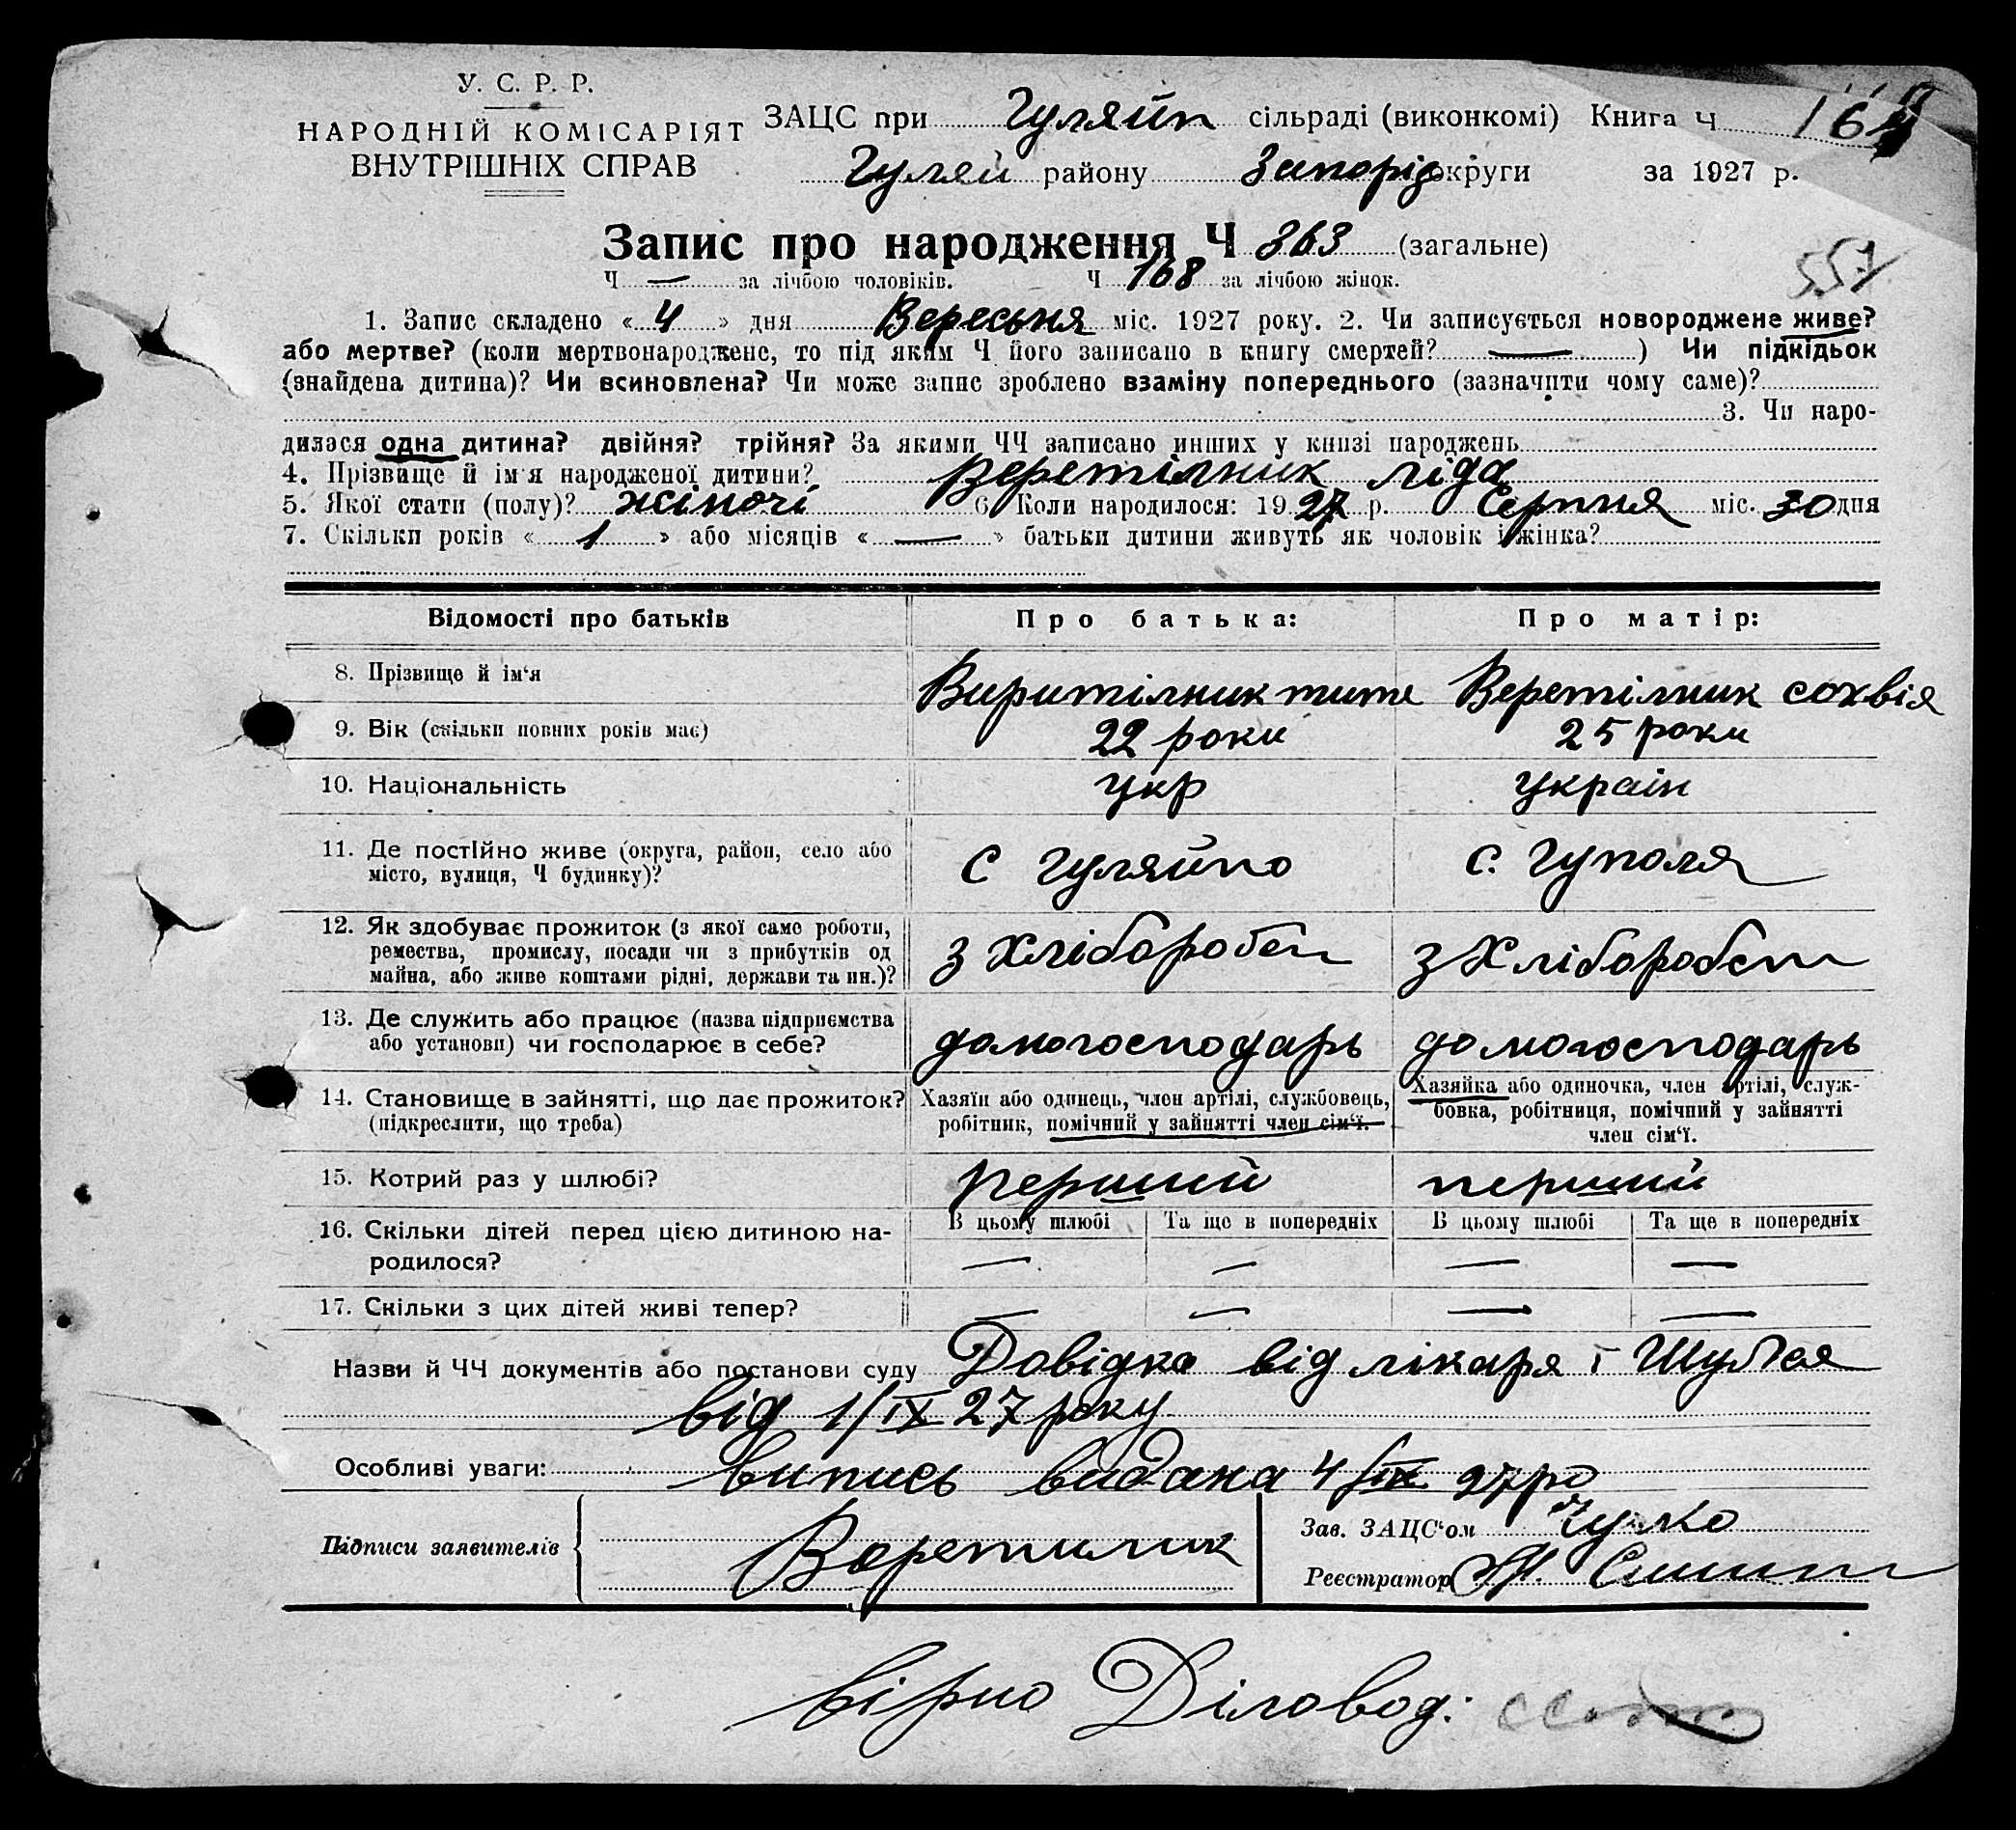 У. С. Р. Р.
НАРОДНІЙ КОМІСАРІЯТ
ВНУТРІШНІХ СПРАВ
ЗАЦС при Гуляйп сільраді (виконкомі) Книга Ч
Гуляй району Запоріз округи за 1927 р.
557
Запис про народження Ч 363 (загальне)
Ч — за лічбою чоловіків. Ч 168 за лічбою жінок.
1. Запис складено « 4 » дня Вересьня міс. 1927 року. 2. Чи записується новороджене живе?
або мертве? (коли мертвонароджене, то під яким Ч його записано в книгу смертей? — ) Чи підкідьок
(знайдена дитина)? Чи всиновлена? Чи може запис зроблено взаміну попереднього (зазначити чому саме)?
3. Чи наро-
дилася одна дитина? двійня? трійня? За якими ЧЧ записано инших у книзі народжень
4. Прізвище й ім'я народженої дитини? Веретілник Ліда
5. Якої стати (полу)? жіночі 6. Коли народилося: 1927 р. Серпня міс. 30 дня
7. Скільки років « 1 » або місяців « — » батьки дитини живуть як чоловік і жінка?
Відомості про батьків Про батька: Про матір:
8. Прізвище й ім‘я Виритілник тите Веретілник сохвія
9. Вік (скільки повних років має) 22 роки 25 роки
10. Національність укр украін
11. Де постійно живе (округа, район, село або
місто, вулиця, Ч будинку)? с гуляйпо с. гуполя
12. Як здобуває прожиток (з якої само роботи,
ремества, промислу, посади чи з прибутків од
майна, або живе коштами рідні, держави та ин.)? з Хлібороб з Хлібороб
13. Де служить або працює (назва підприємства
або установи) чи господарює в себе? домогосподарь домогосподарь
14. Становище в зайнятті, що дає прожиток?
(підкреслити, що треба)
Хазяїн або одинець, член артілі, службовець,
робітник, помічний у зайнятті член сім‘ї.
Хазяйка або одиночка, член артілі, служ-
бовка, робітниця, помічний у зайнятті
член сім‘ї.
15. Котрий раз у шлюбі? перший перший
16. Скільки дітей перед цією дитиною на-
родилося?
В цьому шлюбі Та ще в попередніх В цьому шлюбі Та ще в попередніх
— — — —
17. Скільки з цих дітей живі тепер? — — — —
Назви й ЧЧ документів або постанови суду Довідка від лікаря
від 1/IX 27 року
Особливі уваги: випись видана 4/IX 27 ро
Підписи заявителів Веретилник
Зав. ЗАЦС‘ом
Реєстратор
вірно Діловод: